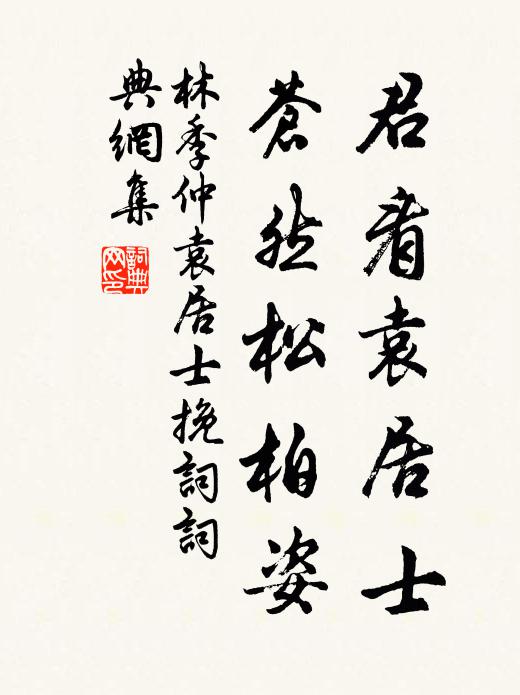 君看袁居士
蒼然松柏姿
林季仲袁居士挽詞詞
典網集
詞典
网印